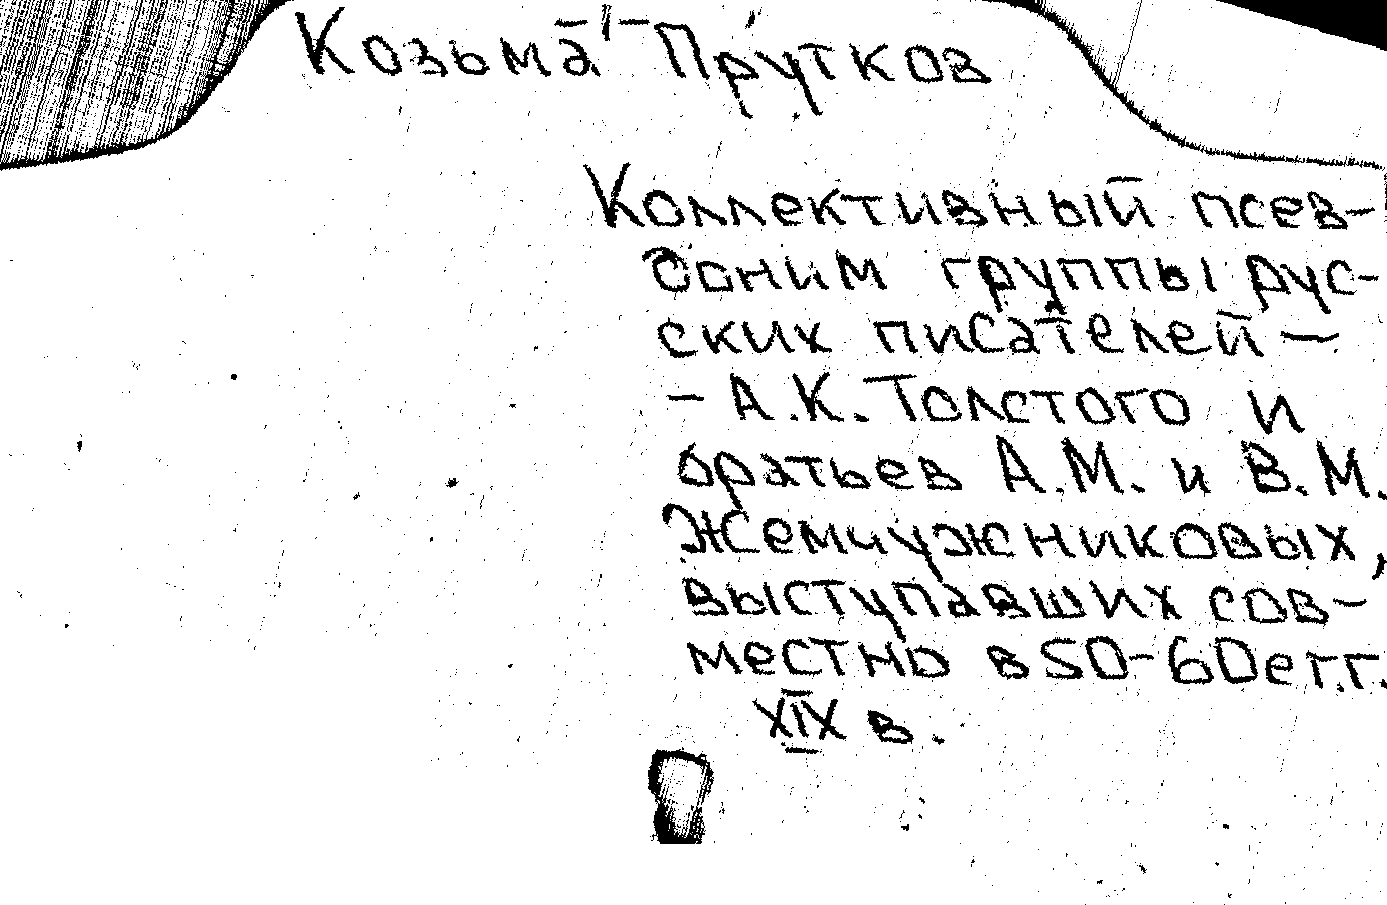 Козьма Прутков
Коллективный псев-
доним группы рус-
ских писателей –
– А.К. Толстого и
братьев А.М. и В.М.
Жемчужниковых,
выступавших сов-
местно в 50-60е г.г.
XIX в.